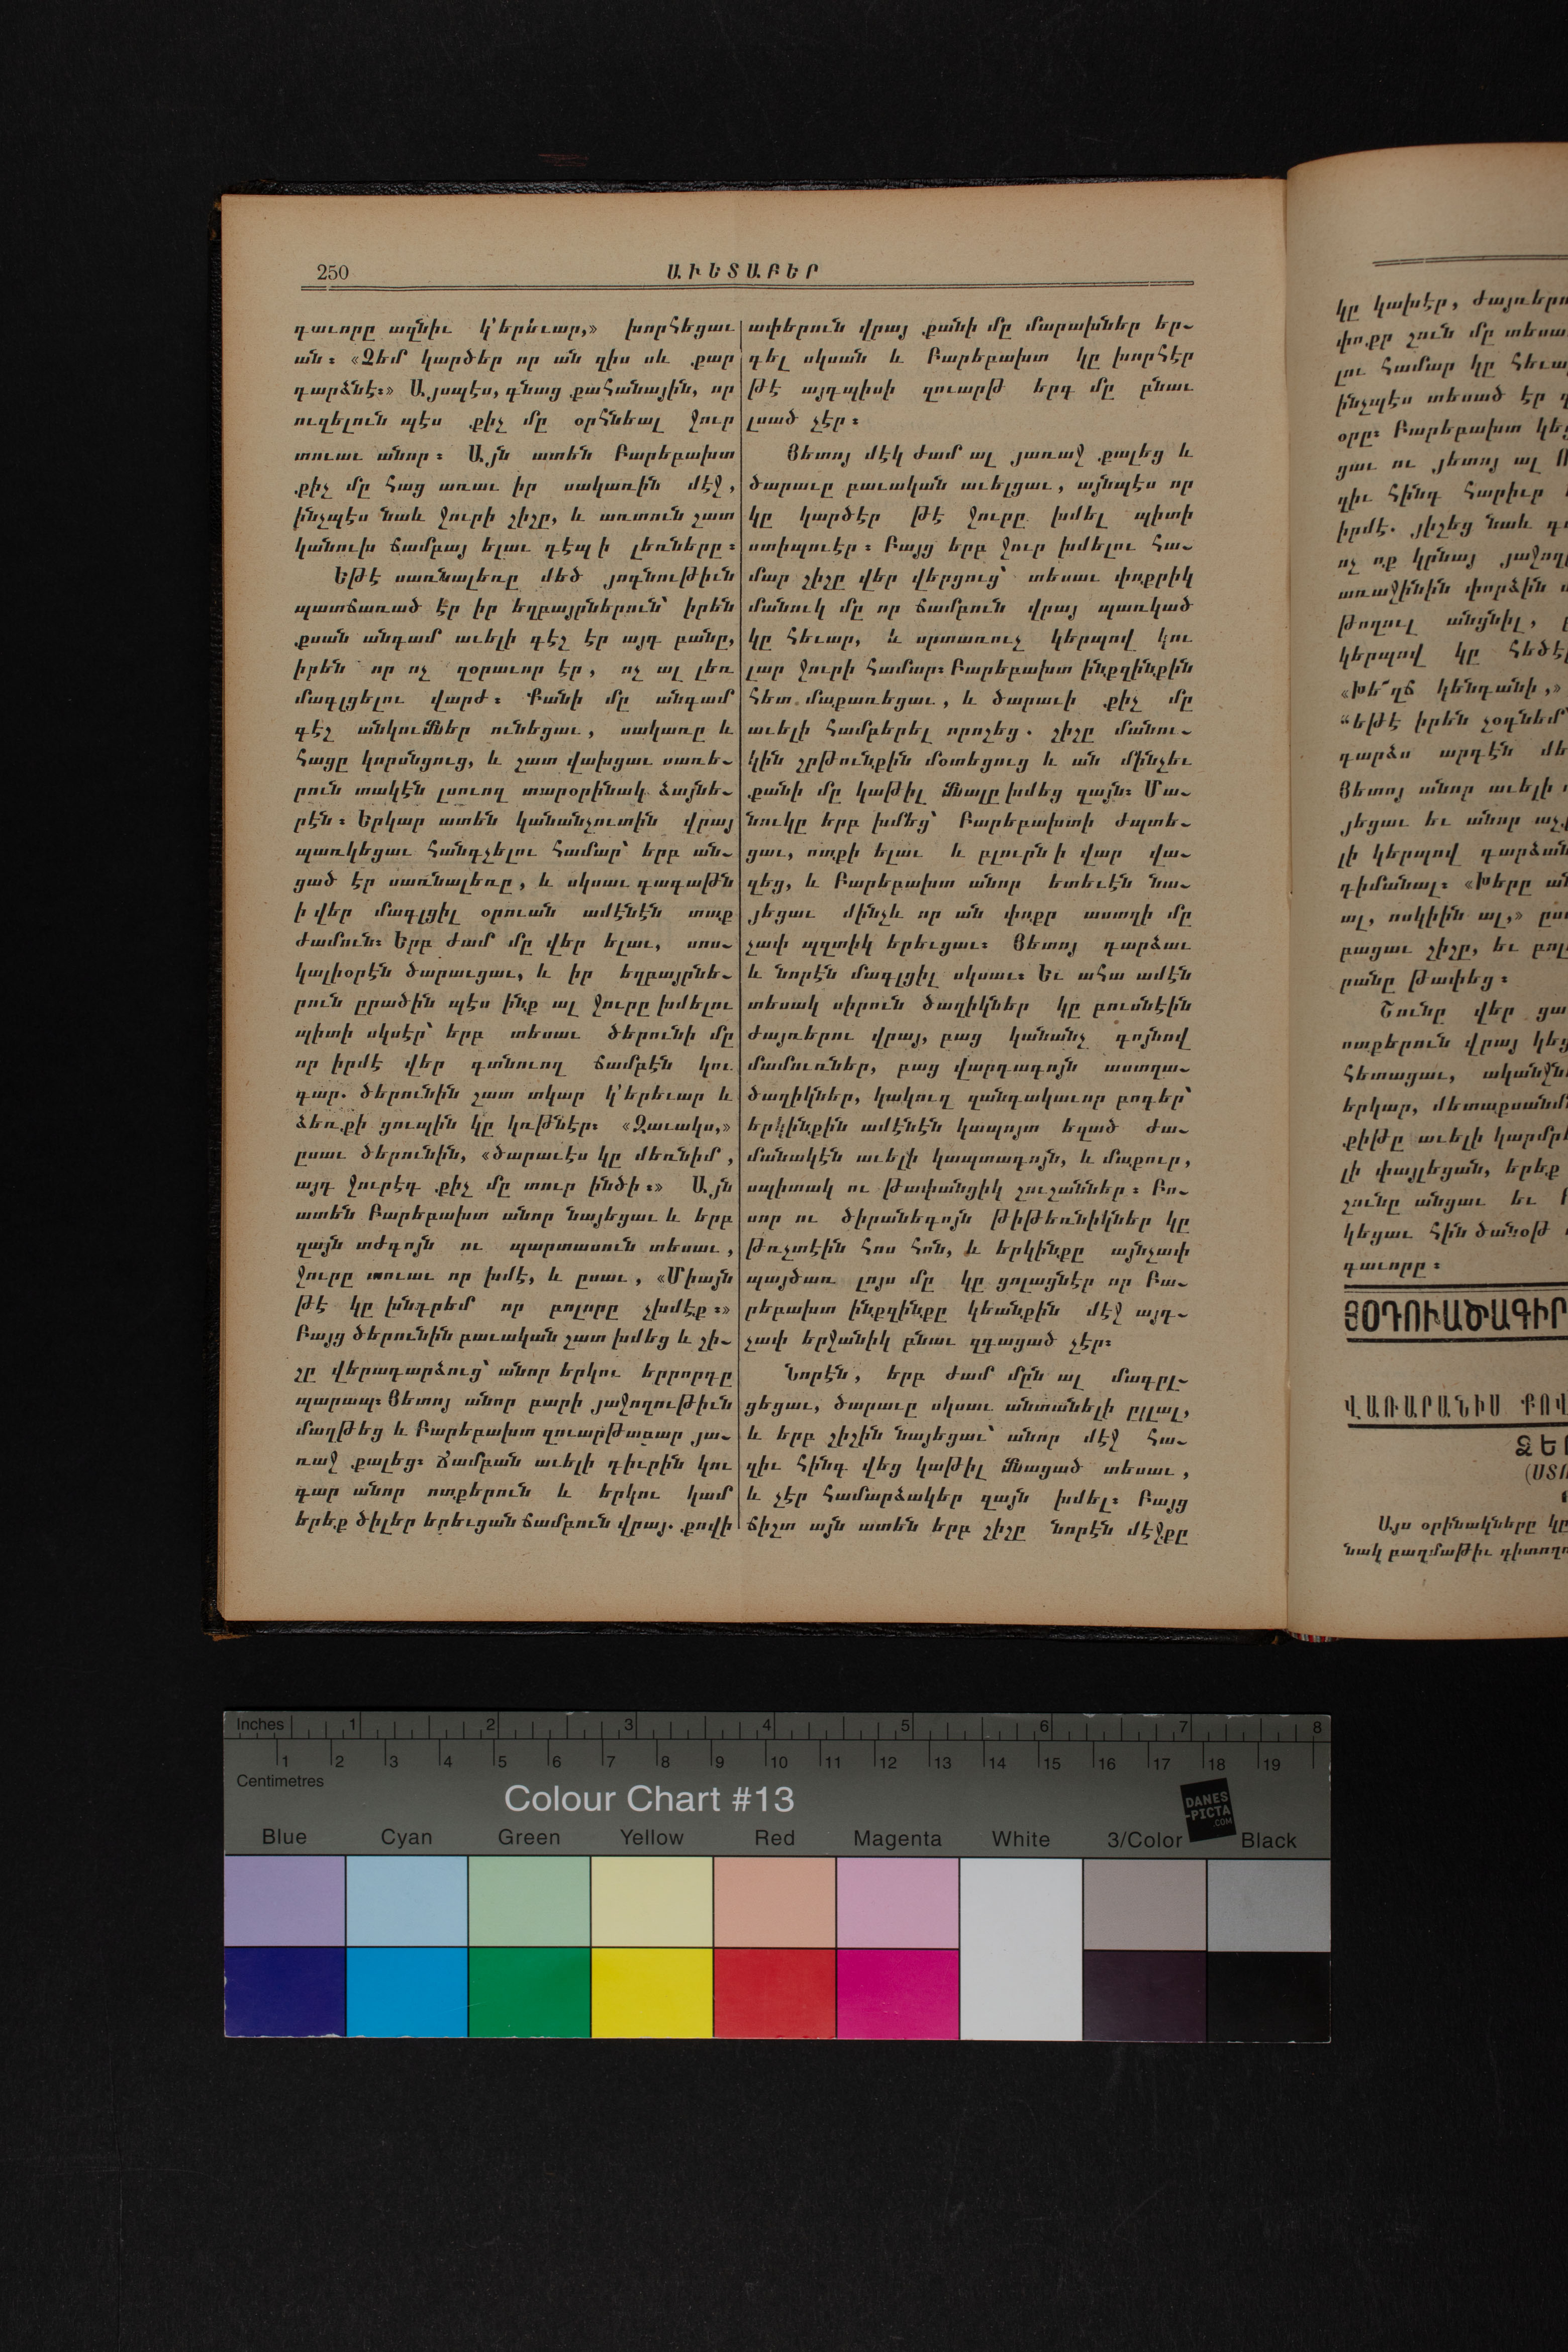 250
ԱՒԵՏԱԲԵՐ
դաւորը ազնիւ կ՚երեւար,» խորհեցաւ
ան։ «Չեմ կարծեր որ ան զիս սև քար
դարձնէ։» Այսպէս, գնաց քահանային, որ
ուզելուն պէս քիչ մը օրհնեալ ջուր
տուաւ անոր։ Այն ատեն Բարեբախտ
քիչ մը հաց առաւ իր սակառին մէջ,
ինչպէս նաև ջուրի շիշը, և առտուն շատ
կանուխ ճամբայ ելաւ դէպ ի լեռները։
Եթէ սառնալեռը մեծ յոգնութիւն
պատճառած էր իր եղբայրներուն՝ իրեն
քսան անգամ աւելի գէշ էր այդ բանը,
իրեն որ ոչ զօրաւոր էր, ոչ ալ լեռ
մագլցելու վարժ։ Քանի մը անգամ
գէշ անկումներ ունեցաւ, սակառը և
հացը կորսնցուց, և շատ վախցաւ սառե-
րուն տակէն լսուող տարօրինակ ձայնե-
րէն։ Երկար ատեն կանանչուտին վրայ
պառկեցաւ հանգչելու համար՝ երբ ան-
ցած էր սառնալեռը, և սկսաւ գագաթն
ի վեր մագլցիլ օրուան ամէնէն տաք
ժամուն։ Երբ ժամ մը վեր ելաւ, սոս-
կալիօրէն ծարաւցաւ, և իր եղբայրնե-
րուն ըրածին պէս ինք ալ ջուրը խմելու
պիտի սկսէր՝ երբ տեսաւ ծերունի մը
որ իրմէ վեր գտնուող ճամբէն կու
գար. ծերունին շատ տկար կ՚երեւար և
ձեռքի ցուպին կը կռթնէր։ «Զաւակս,»
ըսաւ ծերունին, «ծարաւէս կը մեռնիմ,
այդ ջուրէդ քիչ մը տուր ինծի։» Այն
ատեն Բարեբախտ անոր նայեցաւ և երբ
զայն տժգոյն ու պարտասուն տեսաւ,
ջուրը տուաւ որ խմէ, և ըսաւ, «Միայն
թէ կը խնդրեմ որ բոլորը չխմէք։»
Բայց ծերունին բաւական շատ խմեց և շի-
շը վերադարձուց՝ անոր երկու երրորդը
պարապ։ Յետոյ անոր բարի յաջողութիւն
մաղթեց և Բարեբախտ զուարթաբար յա-
ռաջ քալեց։ Ճամբան աւելի դիւրին կու
գար անոր ոտքերուն և երկու կամ
երեք ծիլեր երեւցան ճամբուն վրայ. քովի
ափերուն վրայ քանի մը մարախներ եր-
գել սկսան և Բարեբախտ կը խորհէր
թէ այդպիսի զուարթ երգ մը բնաւ
լսած չէր։
Յետոյ մէկ ժամ ալ յառաջ քալեց և
ծարաւը բաւական աւելցաւ, այնպէս որ
կը կարծէր թէ ջուրը խմել պիտի
ստիպուէր։ Բայց երբ ջուր խմելու հա-
մար շիշը վեր վերցուց՝ տեսաւ փոքրիկ
մանուկ մը որ ճամբուն վրայ պառկած
կը հեւար, և սրտառուչ կերպով կու
լար ջուրի համար։ Բարեբախտ ինքզինքին
հետ մաքառեցաւ, և ծարաւի քիչ մը
աւելի համբերել որոշեց. շիշը մանու-
կին շրթունքին մօտեցուց և ան մինչեւ
քանի մը կաթիլ մնալը խմեց զայն։ Մա-
նուկը երբ խմեց՝ Բարեբախտի ժպտե-
ցաւ, ոտքի ելաւ և բլուրն ի վար վա-
զեց, և Բարեբախտ անոր ետեւէն նա-
յեցաւ մինչև որ ան փոքր աստղի մը
չափ պզտիկ երեւցաւ։ Յետոյ դարձաւ
և նորէն մագլցիլ սկսաւ։ Եւ ահա ամէն
տեսակ սիրուն ծաղիկներ կը բուսնէին
ժայռերու վրայ, բաց կանանչ գոյնով
մամուռներ, բաց վարդագոյն աստղա-
ծաղիկներ, կակուղ զանգակաւոր բոգեր՝
երկինքին ամէնէն կապոյտ եղած ժա-
մանակէն աւելի կապտագոյն, և մաքուր,
սպիտակ ու թափանցիկ շուշաններ։ Բո-
սոր ու ծիրանեգոյն թիթեռնիկներ կը
թռչտէին հոս հոն, և երկինքը այնչափ
պայծառ լոյս մը կը ցոլացնէր որ Բա-
րեբախտ ինքզինքը կեանքին մէջ այդ-
չափ երջանիկ բնաւ զգացած չէր։
Նորէն, երբ ժամ մըն ալ մագըլ-
ցեցաւ, ծարաւը սկսաւ անտանելի ըլլալ,
և երբ շիշին նայեցաւ՝ անոր մէջ հա-
զիւ հինգ վեց կաթիլ մնացած տեսաւ,
և չէր համարձակեր զայն խմել։ Բայց
ճիշտ այն ատեն երբ շիշը նորէն մէջքը
կը կախէր, ժայռերու
փոքր շուն մը տեսաւ
լու համար կը հեւար
ինչպէս տեսած էր
օրը։ Բարեբախտ կեց
ցաւ ու յետոյ ալ
զիւ հինգ հարիւր
իրմէ. յիշեց նաև
ոչ ոք կրնայ յաջողի
առաջինին փորձին
թողուլ անցնիլ,
կերպով կը հեծէր
«Խե՜ղճ կենդանի,»
“եթէ իրեն չօգնեմ՝
դարձս արդէն մե
Յետոյ անոր աւելի
յեցաւ եւ անոր աչք
լի կերպով դարձան
դիմանալ։ «Խերը ան
ալ, ոսկիին ալ,» ըսաւ
բացաւ շիշը, եւ բոլո
րանը թափեց։
Շունը վեր ցա
ոտքերուն վրայ կեց
հետացաւ, ականջնե
երկար, մետաքսանմ
քիթը աւելի կարմրե
լի փայլեցան, երեք
շունը անցաւ եւ
կեցաւ հին ծանօթ
գաւորը։
ՅՕԴՈՒԱԾԱԳԻՐ
ՎԱՌԱՐԱՆԻՍ ՔՈՎ
ՁԵՐ
(ՍՏՈ
Այս օրինակները կը
նակ բազմաթիւ դիտողո
Inches 1 2 3 4 5 6 7 8
1 2 3 4 5 6 7 8 9 10 11 12 13 14 15 16 17 18 19
Centimetres
Colour Chart #13
DANES
-PICTA
.COM
Blue Cyan Green Yellow Red Magenta White 3/Color Black